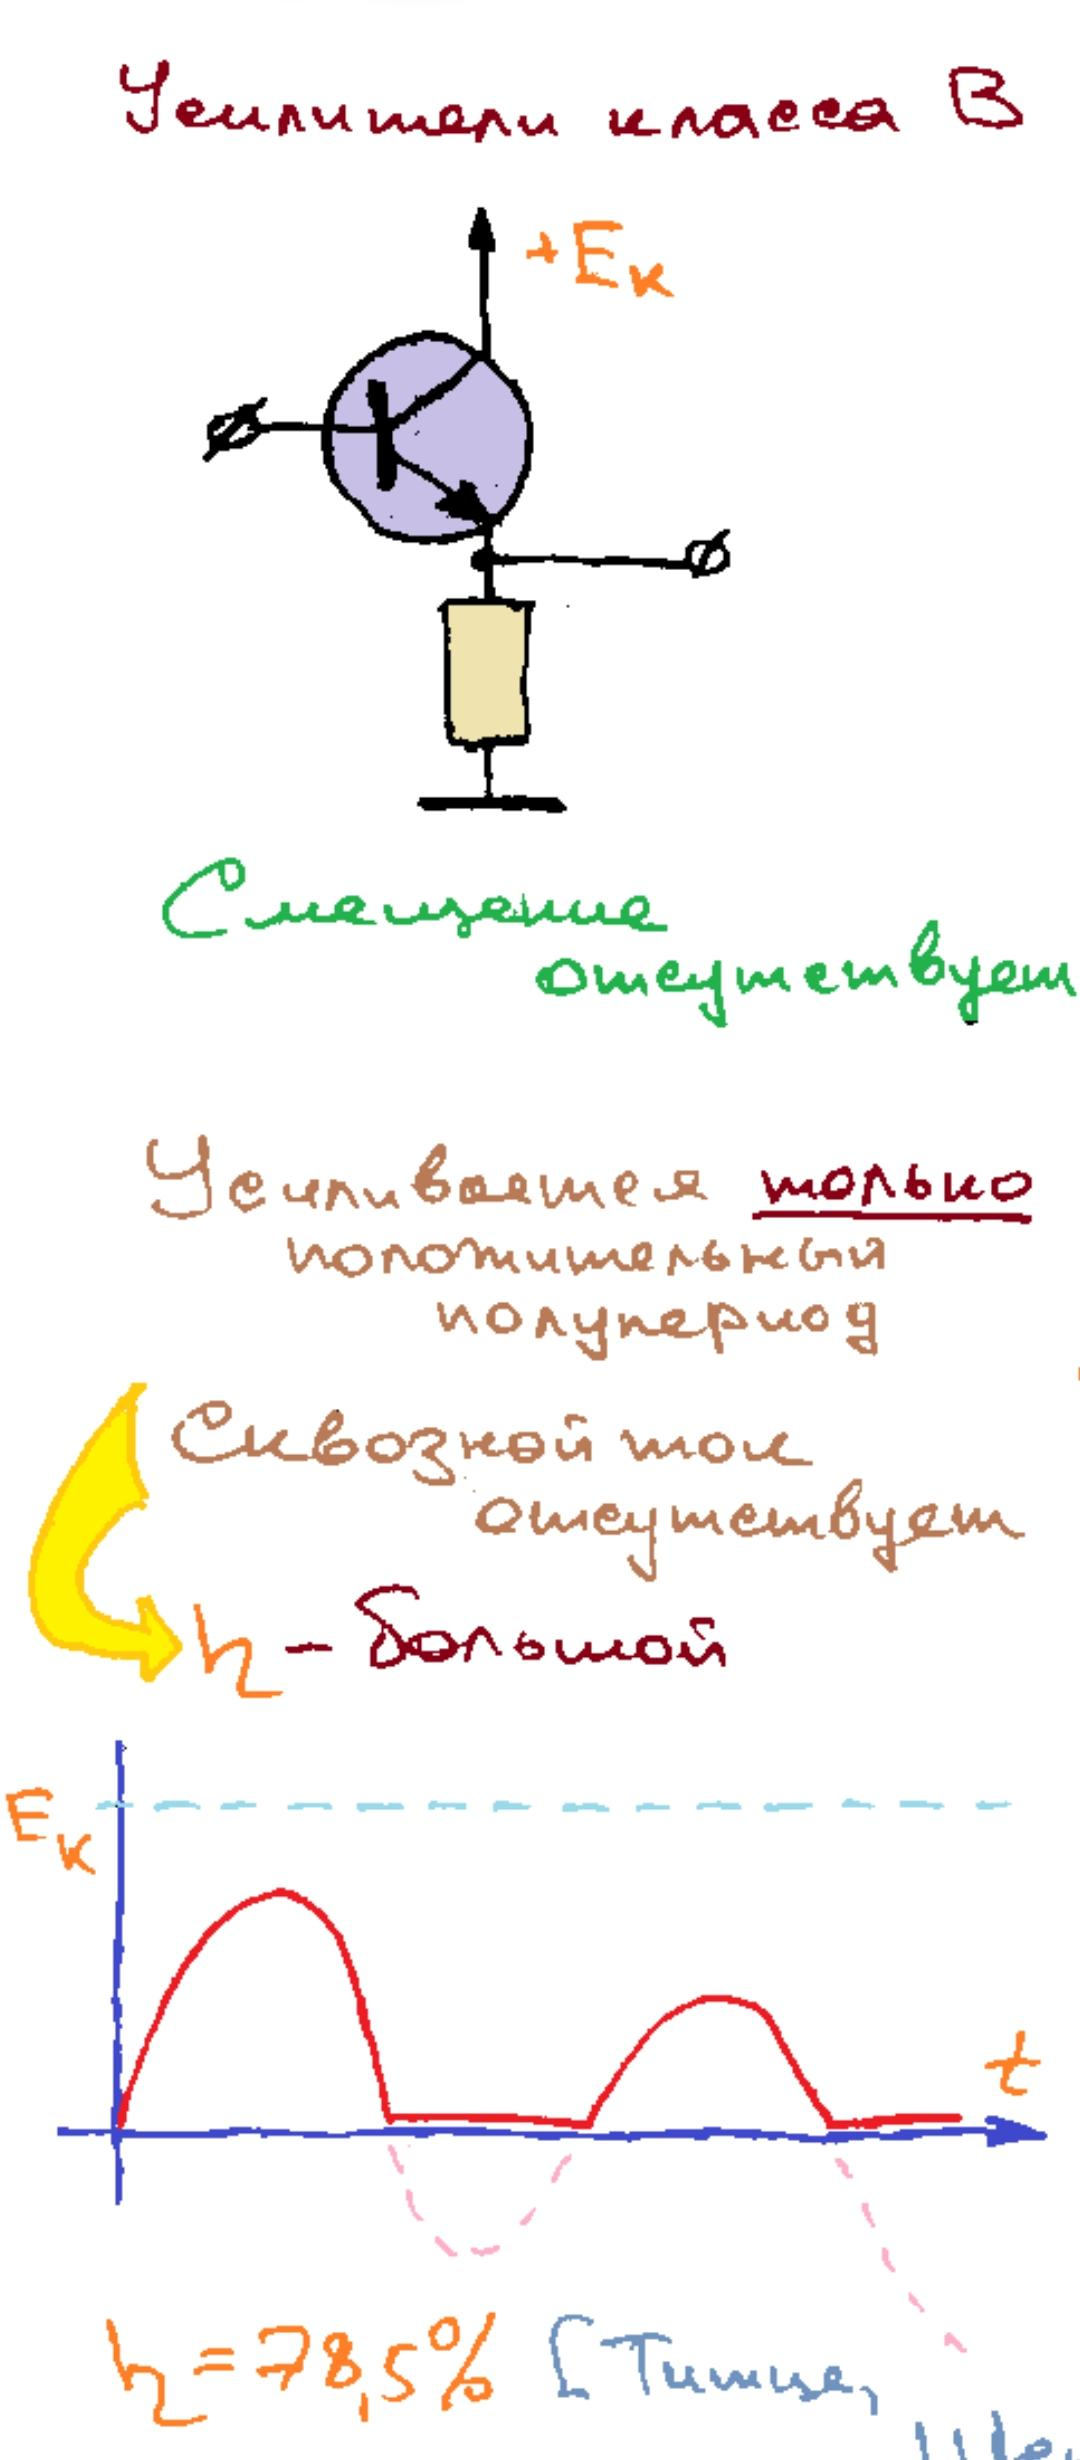 Усилители класса В
+Eк
Смещение
отсутствует
Усиливается только
положительный
полупериод
Сквозной ток
отсутствует
η - большой
Eк
t
η = 78,5% [Титце,